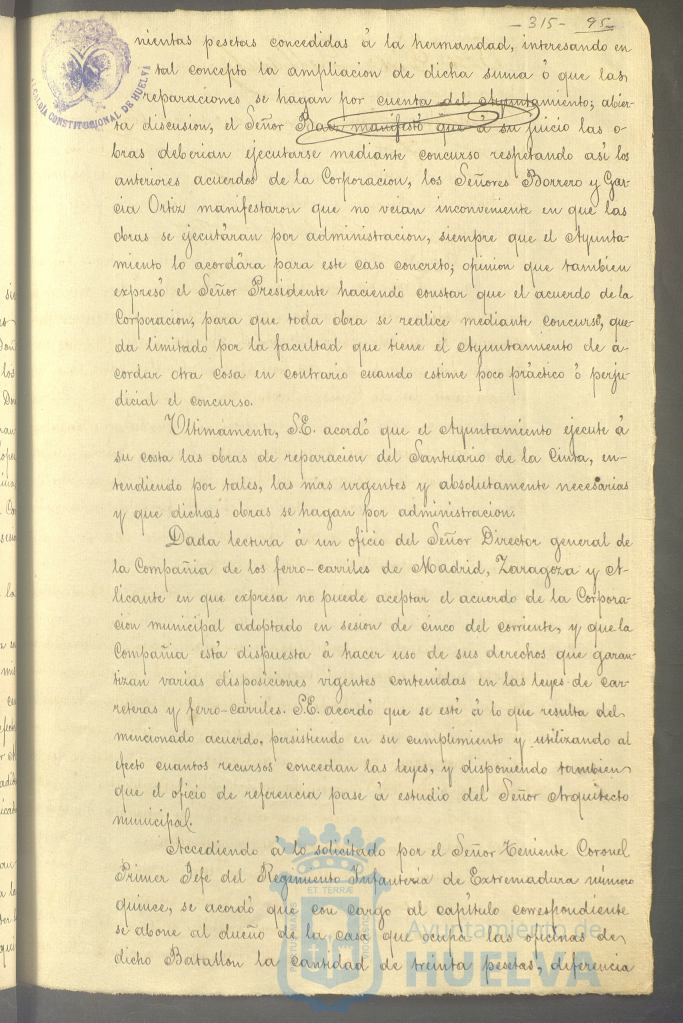 - 315 - 95
ALCALDIA CONSTITUCIONAL DE HUELVA
nientas pesetas concedidas á la hermandad, interesando en
tal concepto la ampliacion de dicha suma ó que las
reparaciones se hagan por cuenta del Ayuntamiento; abier-
ta discusion, el Señor manifestó que á su juicio las o-
bras deberian ejecutarse mediante concurso respetando asi los
anteriores acuerdos de la Corporacion, los Señores Borrero y Gar-
cia Ortiz manifestaron que no veian inconveniente en que las
obras se ejecutáran por administracion, siempre que el Ayunta-
miento lo acordára para este caso concreto; opinion que tambien
expresó el Señor Presidente haciendo constar que el acuerdo de la
Corporacion, para que toda obra se realice mediante concurso, que-
da limitado por la facultad que tiene el Ayuntamiento de a-
cordar otra cosa en contrario cuando estime poco práctico ó perju-
dicial el concurso.
Ultimamente, S.E. acordó que el Ayuntamiento ejecute á
su costa las obras de reparacion del Santuario de la Cinta, en-
tendiendo por tales, las mas urgentes y absolutamente necesarias
y que dichas obras se hagan por administracion.
Dada lectura á un oficio del Señor Director general de
la Compañia de los ferro-carriles de Madrid, Zaragoza y A-
licante en que expresa no puede aceptar el acuerdo de la Corpora-
cion municipal adoptado en sesion de cinco del corriente, y que la
Compañia está dispuesta á hacer uso de sus derechos que garan-
tizan varias disposiciones vigentes contenidas en las leyes de car-
reteras y ferro-carriles. S.E. acordó que se esté á lo que resulta del
mencionado acuerdo, persistiendo en su cumplimiento y utilizando al
efecto cuantos recursos concedan las leyes, y disponiendo tambien
que el oficio de referencia pase á estudio del Señor Arquitecto
municipal.
Accediendo á lo solicitado por el Señor Teniente Coronel
Primer Jefe del Regimiento Infanteria de Extremadura número
quince, se acordó que con cargo al capítulo correspondiente
se abone al dueño de la casa que ocupa las oficinas de
dicho Batallon la cantidad de treinta pesetas, diferencia
Ayuntamiento de
HUELVA
ET TERRÆ